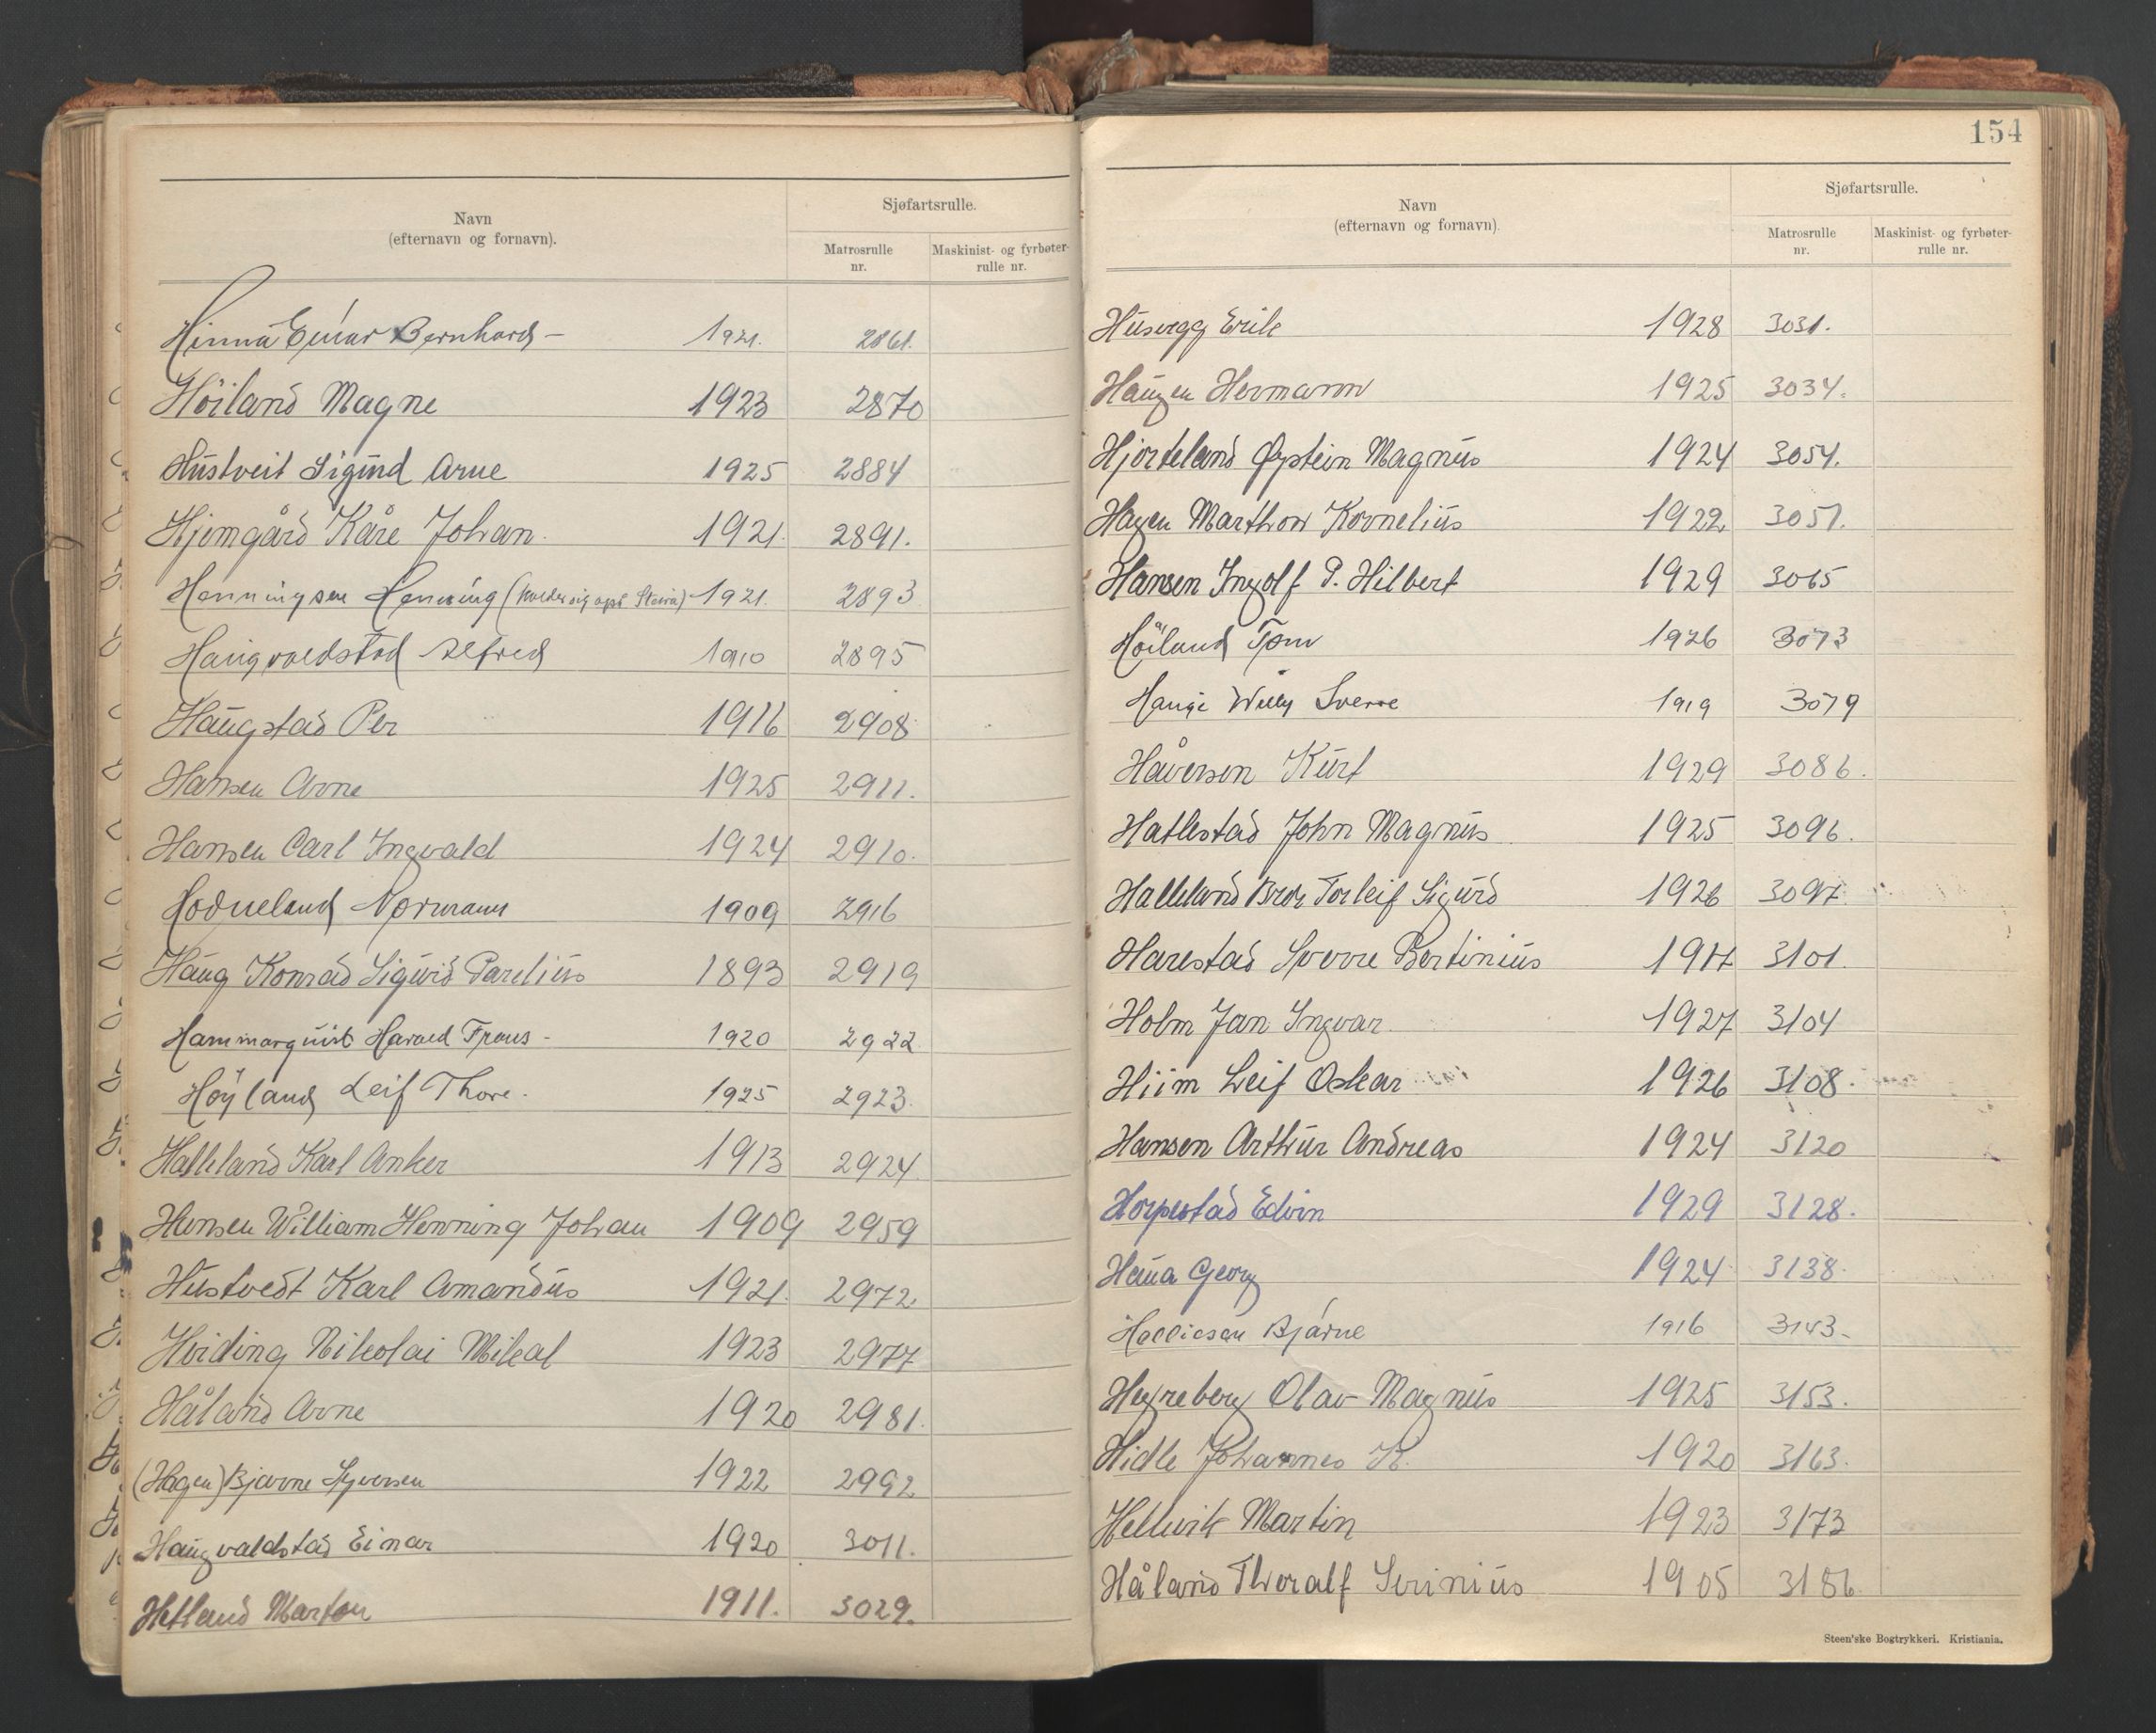 Navn
(efternavn og fornavn).
Sjøfartsrulle.
Matrosrulle nr.
Maskinist- og fyrbøter-rulle nr.
Hinna Einar Bernhard – 1921. 2861.
Höiland Magne 1923 2870
Hustveit Sigurd Arne 1925 2884
Hjemgård Kåre Johan. 1921. 2891.
Henningsen Henning 1921. 2893
Haugvaldstad Alfred 1910 2895
Haugstad Per 1916 2908
Hansen Arne 1925 2911.
Hansen Carl Ingvald 1924 2910.
Hodneland Normann 1909 2916
Haug Konrad Sigurd Parelius 1893 2919
Hammarquist Harald Frans - 1920 2922
Höyland Leif Thore. 1925 2923.
Halleland Karl Anker 1913 2924.
Hansen William Henning Johan 1909 2959
Hustvedt Karl Amandus 1921. 2972.
Hviding Nikolai Mikal 1923 2977
Håland Arne 1920 2981.
(Hagen) Bjarne Syversen 1922 2992
Haugvaldstad Einar 1920 3011.
Hetland Marton 1911. 3029.
154
Navn
(efternavn og fornavn).
Sjøfartsrulle.
Matrosrulle nr.
Maskinist- og fyrbøter-rulle nr.
Husegg Erik 1928 3031.
Haugen Hermann 1925 3034.
Hjorteland Øystein Magnus 1924 3054.
Hagen Marthon Kornelius 1922 3051.
Hansen Ingolf P. Hilbert 1929 3065
Höiland Tom 1926 3073
Hauge Willy Sverre 1919 3079
Håversen Kurt 1929 3086.
Hatlestad John Magnus 1925 3096.
Halleland Bror Torleif Sigurd 1926 3097.
Harestad Sverre Bertinius 1917 3101.
Holm Jan Ingvar 1927 3104
Hiim Leif Oskar 1926 3108.
Hansen Arthur Andreas 1924 3120
Horpestad Edvin 1929 3128.
Haua Georg 1924 3138.
Hallicsen Bjarne 1916 3143-
Hegreberg Olav Magnus 1925 3153.
Hidle Johannes K. 1920 3163.
Hellvik Martin 1923 3173
Håland Thoralf Serinius 1905 3186.
Steen'ske Bogtrykkeri. Kristiania.